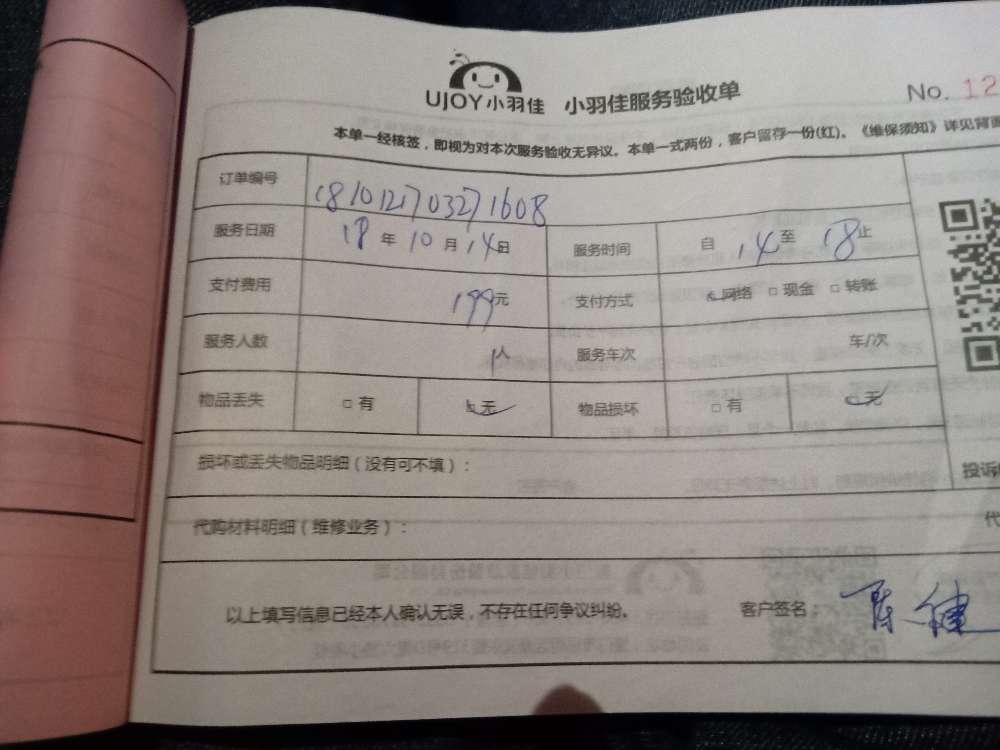 UJOY小羽佳 小羽佳服务验收单 No. 12
本单一经核签，即视为对本次服务验收无异议。本单一式两份，客户留存一份(红)。《维保须知》详见背面
订单编号 1810121703271608
服务日期 18年10月14日 服务时间 自14至18止
支付费用 199元 支付方式 网络 □现金 □转账
服务人数 1人 服务车次 车/次
物品丢失 □有 □无 物品损坏 □有 □无
损坏或丢失物品明细（没有可不填）：
投诉
代购材料明细（维修业务）：
代
以上填写信息已经本人确认无误，不存在任何争议纠纷。 客户签名：陈健